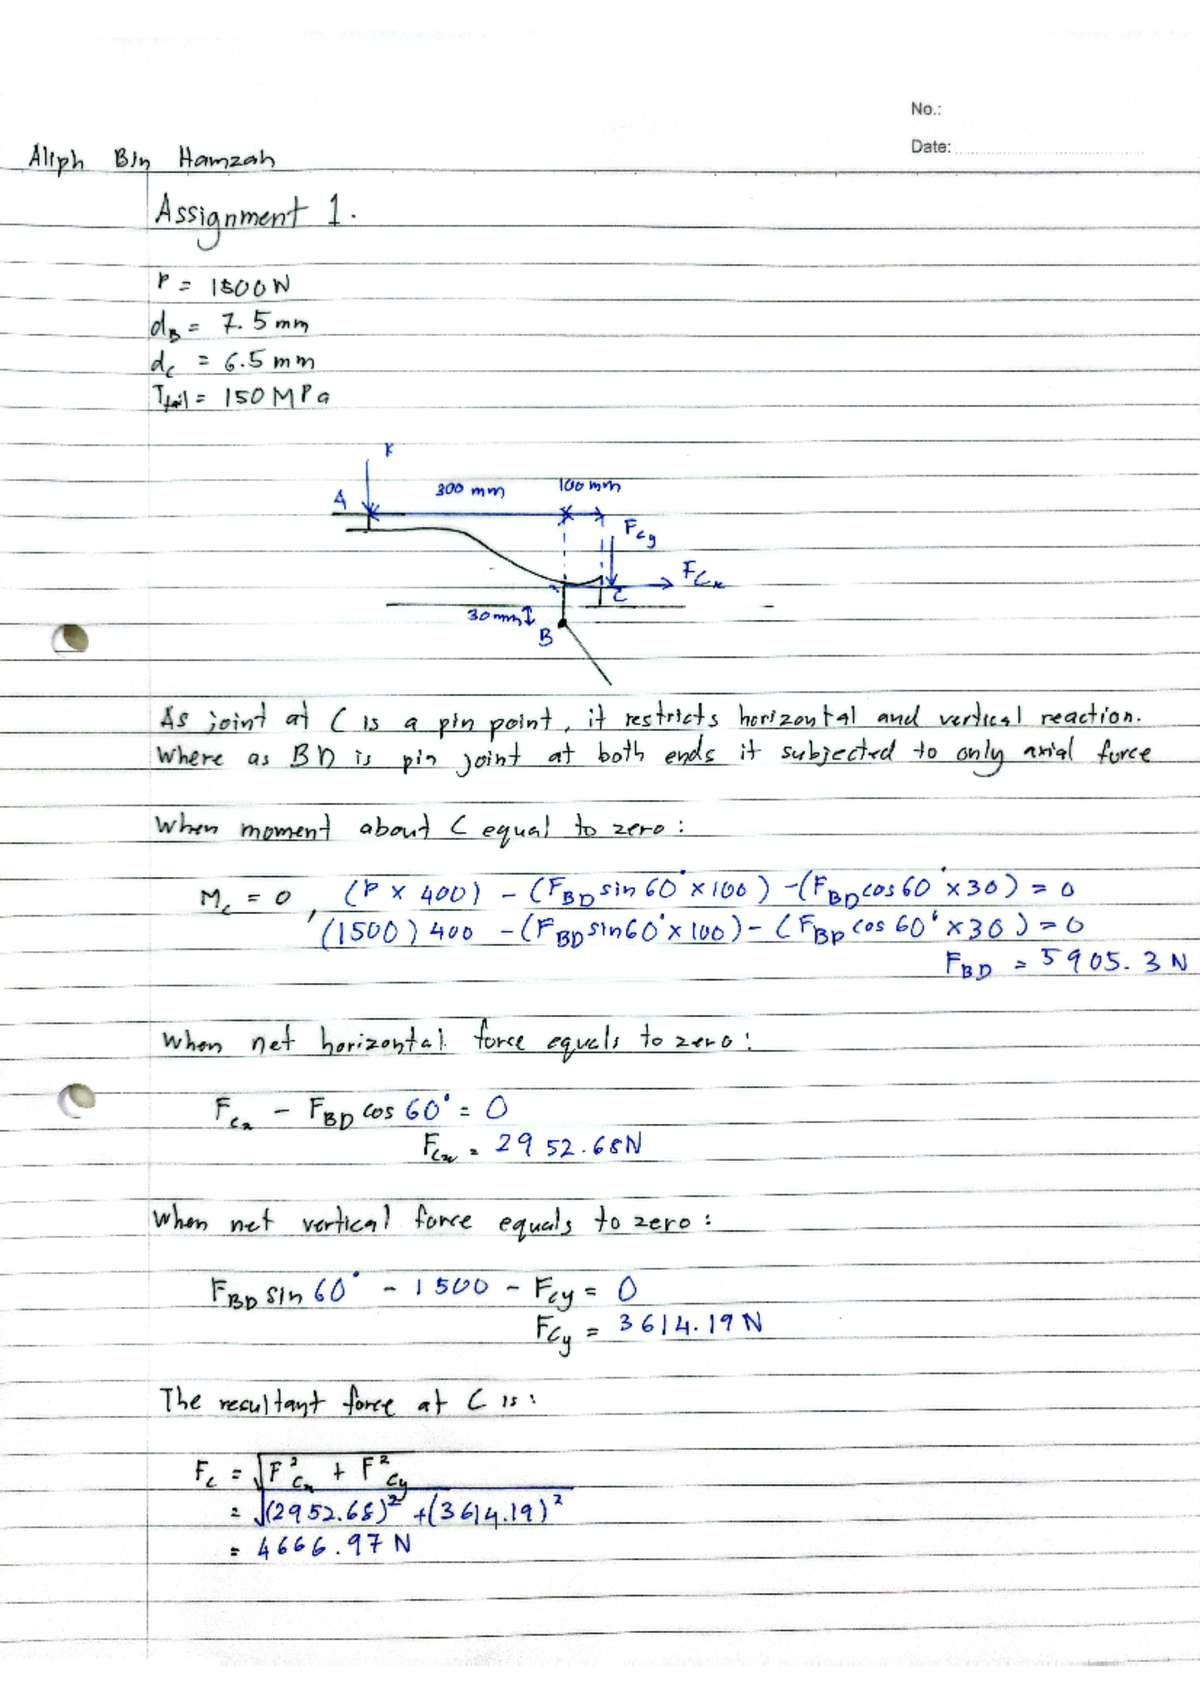 No.:
Date:
Aliph Bin Hamzah
Assignment 1.
P = 1500N
d_B = 7.5mm
d_c = 6.5mm
T_fail = 150 MPa
A
300 mm
100 mm
F_Cy
F_Cx
C
30mm
B
As joint at C is a pin point, it restricts horizontal and vertical reaction.
Where as BD is pin joint at both ends it subjected to only axial force
When moment about C equal to zero :
M_c = 0, (P × 400) - (F_BD sin 60° × 100) - (F_BD cos 60° × 30) = 0
(1500) 400 - (F_BD sin 60° × 100) - (F_BD cos 60° × 30) = 0
F_BD = 5905.3 N
When net horizontal force equals to zero :
F_Cx - F_BD cos 60° = 0
F_Cx = 2952.68N
When net vertical force equals to zero :
F_BD sin 60° - 1500 - F_Cy = 0
F_Cy = 3614.19 N
The resultant force at C is :
F_c = √F²_Cx + F²_Cy
= √(2952.68)² + (3614.19)²
= 4666.97 N